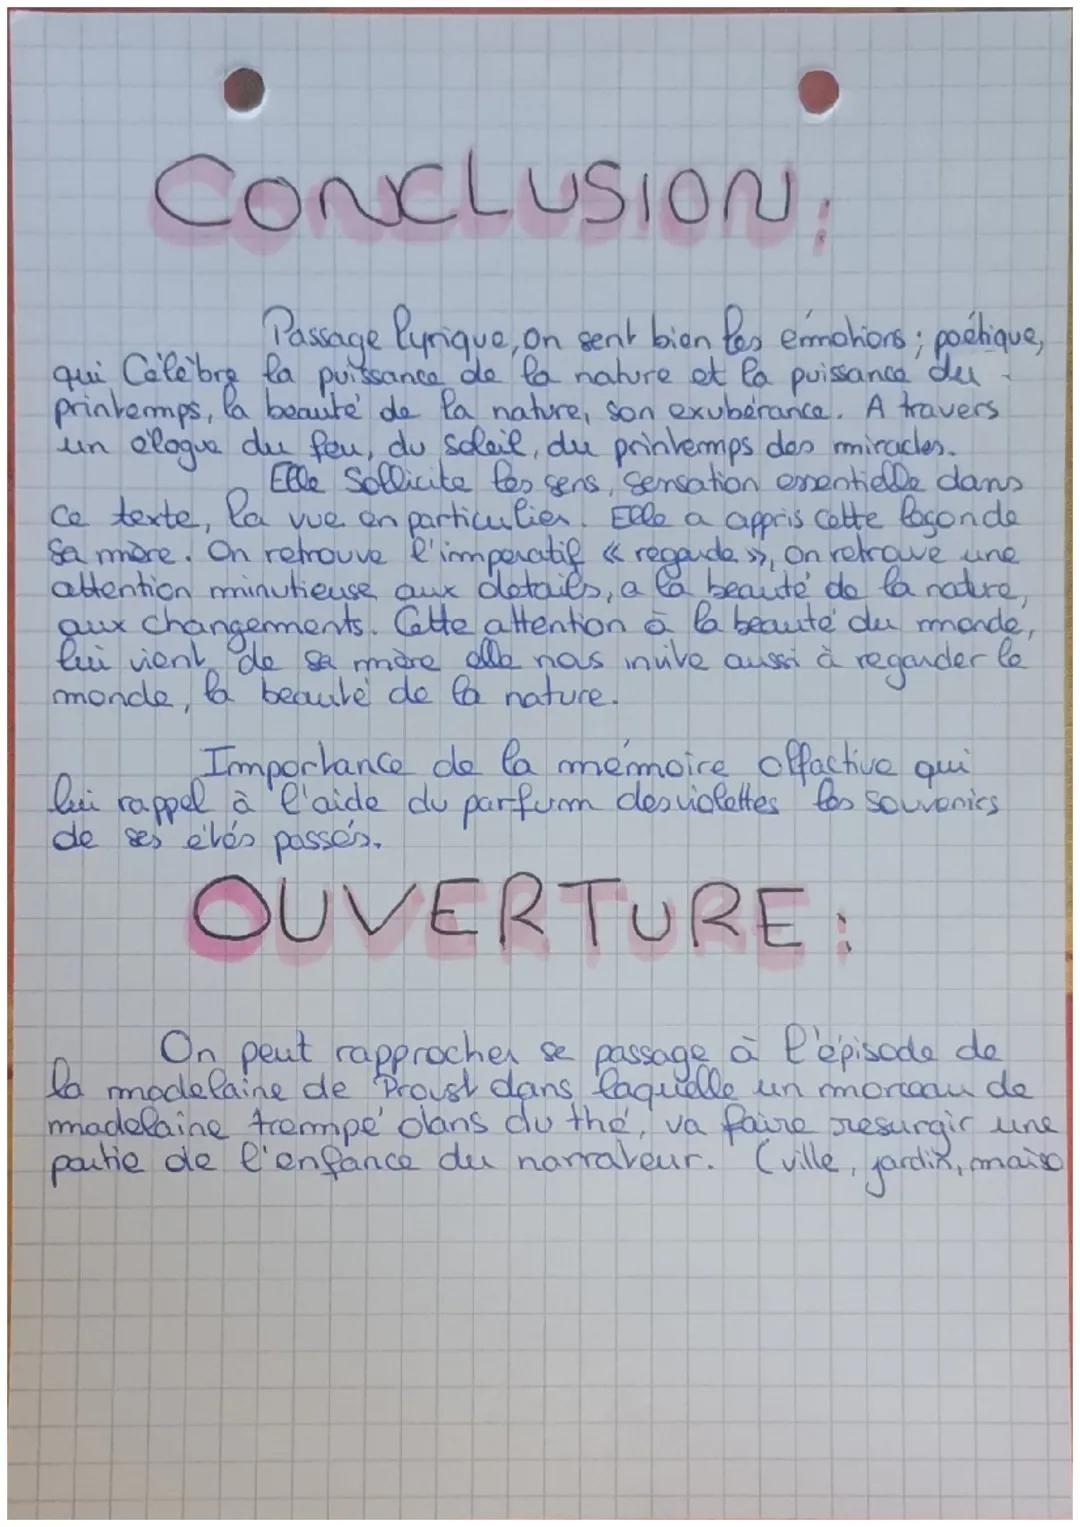 CONCLUSION:
Passage lyrique, on sent bien les émotions ; poétique,
qui Célèbre la puissance de la nature et la puissance du
printemps, la beauté de la nature, son exubérance. A travers
un éloge du feu, du soleil, du printemps des miracles.
Elle Sollicite les sens, sensation essentielle dans
ce texte, la vue en particulier. Elle a appris cette leçon de
sa mère. On retrouve l'imperatif « regarde », on retrouve une
attention minutieuse aux details, a la beauté de la nature,
aux changements. Cette attention à la beauté du monde,
lui vient de sa mère elle nous invite aussi à regarder le
monde, la beauté de la nature.
Importance de la mémoire olfactive qui
lui rappel à l'aide du parfum des violettes les souvenirs
de ses étés passés.
OUVERTURE:
On peut rapprocher se passage à l'épisode de
la madelaine de Proust dans laquelle un morceau de
madelaine trempé dans du thé, va faire resurgir une
partie de l'enfance du narrateur. (ville, jardin, maiso